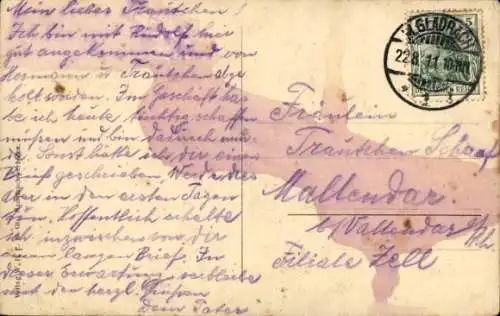 Mein lieber Trautchen!
Ich bin mit Rudolf hier
gut angekommen und von
Hermann u Trautchen abge
holt worden. Im Geschäft ha
be ich heute tüchtig schaffen
müssen und bin dadurch mü
de. Sonst hätte ich dir einen
Brief geschrieben. Werde dies
aber in den ersten Tagen
tun. Hoffentlich erhalte
ich inzwischen von dir
einen langen Brief. In
dieser Erwartung verbleibe
mit den herzl. Grüßen
Dein Vater
M. GLADBACH
22.8.11
5
Fräulein
Trautchen Schaaf
Mallendar
b/Vallendar a/Rh.
Filiale Zell